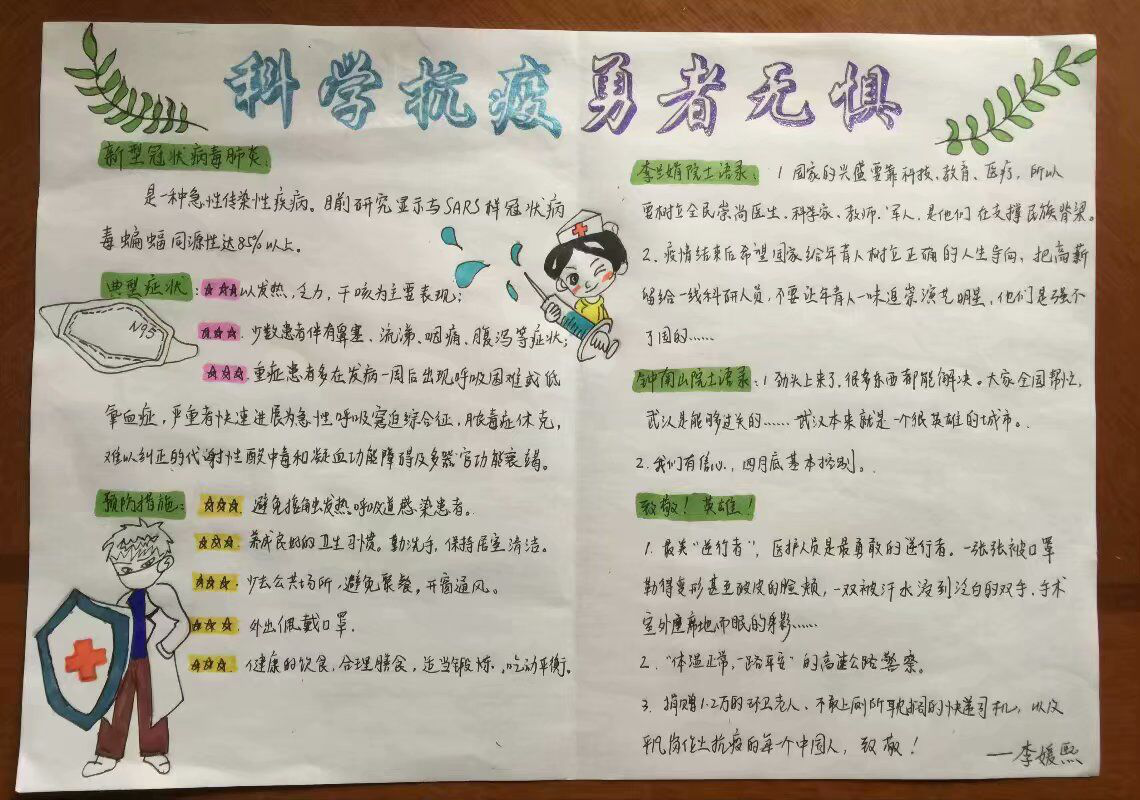 科学抗疫 勇者无惧
新型冠状病毒肺炎:
是一种急性传染性疾病。目前研究显示与SARS样冠状病
毒蝙蝠同源性达85%以上。
典型症状: ☆☆☆以发热,乏力,干咳为主要表现;
N95
☆☆☆.少数患者伴有鼻塞、流涕、咽痛、腹泻等症状;
☆☆☆.重症患者多在发病一周后出现呼吸困难或低
氧血症,严重者快速进展为急性呼吸窘迫综合征,脓毒症休克,
难以纠正的代谢性酸中毒和凝血功能障碍及多器官功能衰竭。
预防措施: ☆☆☆. 避免接触发热呼吸道感染患者。
☆☆☆. 养成良好的卫生习惯。勤洗手,保持居室清洁。
☆☆☆. 少去公共场所,避免聚餐,开窗通风。
☆☆☆. 外出佩戴口罩.
☆☆☆. 健康的饮食,合理膳食,适当锻炼.吃动平衡.
李兰娟院士语录: 1 国家的兴盛要靠科技、教育、医疗,所以
要树立全民崇尚医生、科学家、教师.军人,是他们在支撑民族脊梁。
2、疫情结束后希望国家给年青人树立正确的人生导向,把高薪
留给一线科研人员,不要让年青人一味追崇演艺明星,他们是强不
了国的……
钟南山院士语录:1 劲头上来了,很多东西都能解决。大家全国帮忙,
武汉是能够过关的…… 武汉本来就是一个很英雄的城市。
2.我们有信心,四月底基本控制。
致敬!英雄!
1. 最美"逆行者",医护人员是最勇敢的逆行者。一张张被口罩
勒得变形甚至破皮的脸颊,一双被汗水浸到泛白的双手,手术
室外席地而眠的身影……
2."体温正常,一路平安"的高速公路警察。
3. 捐赠1.2万的环卫老人、不敢上厕所耽搁的快递司机,以及
平凡岗位上抗疫的每个中国人,致敬!
—李媛熙